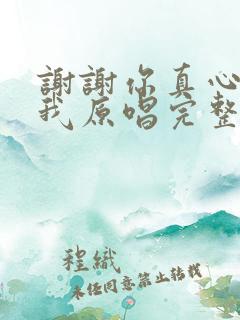 謝謝你真心
我原唱完整
程織
未经同意禁止转载